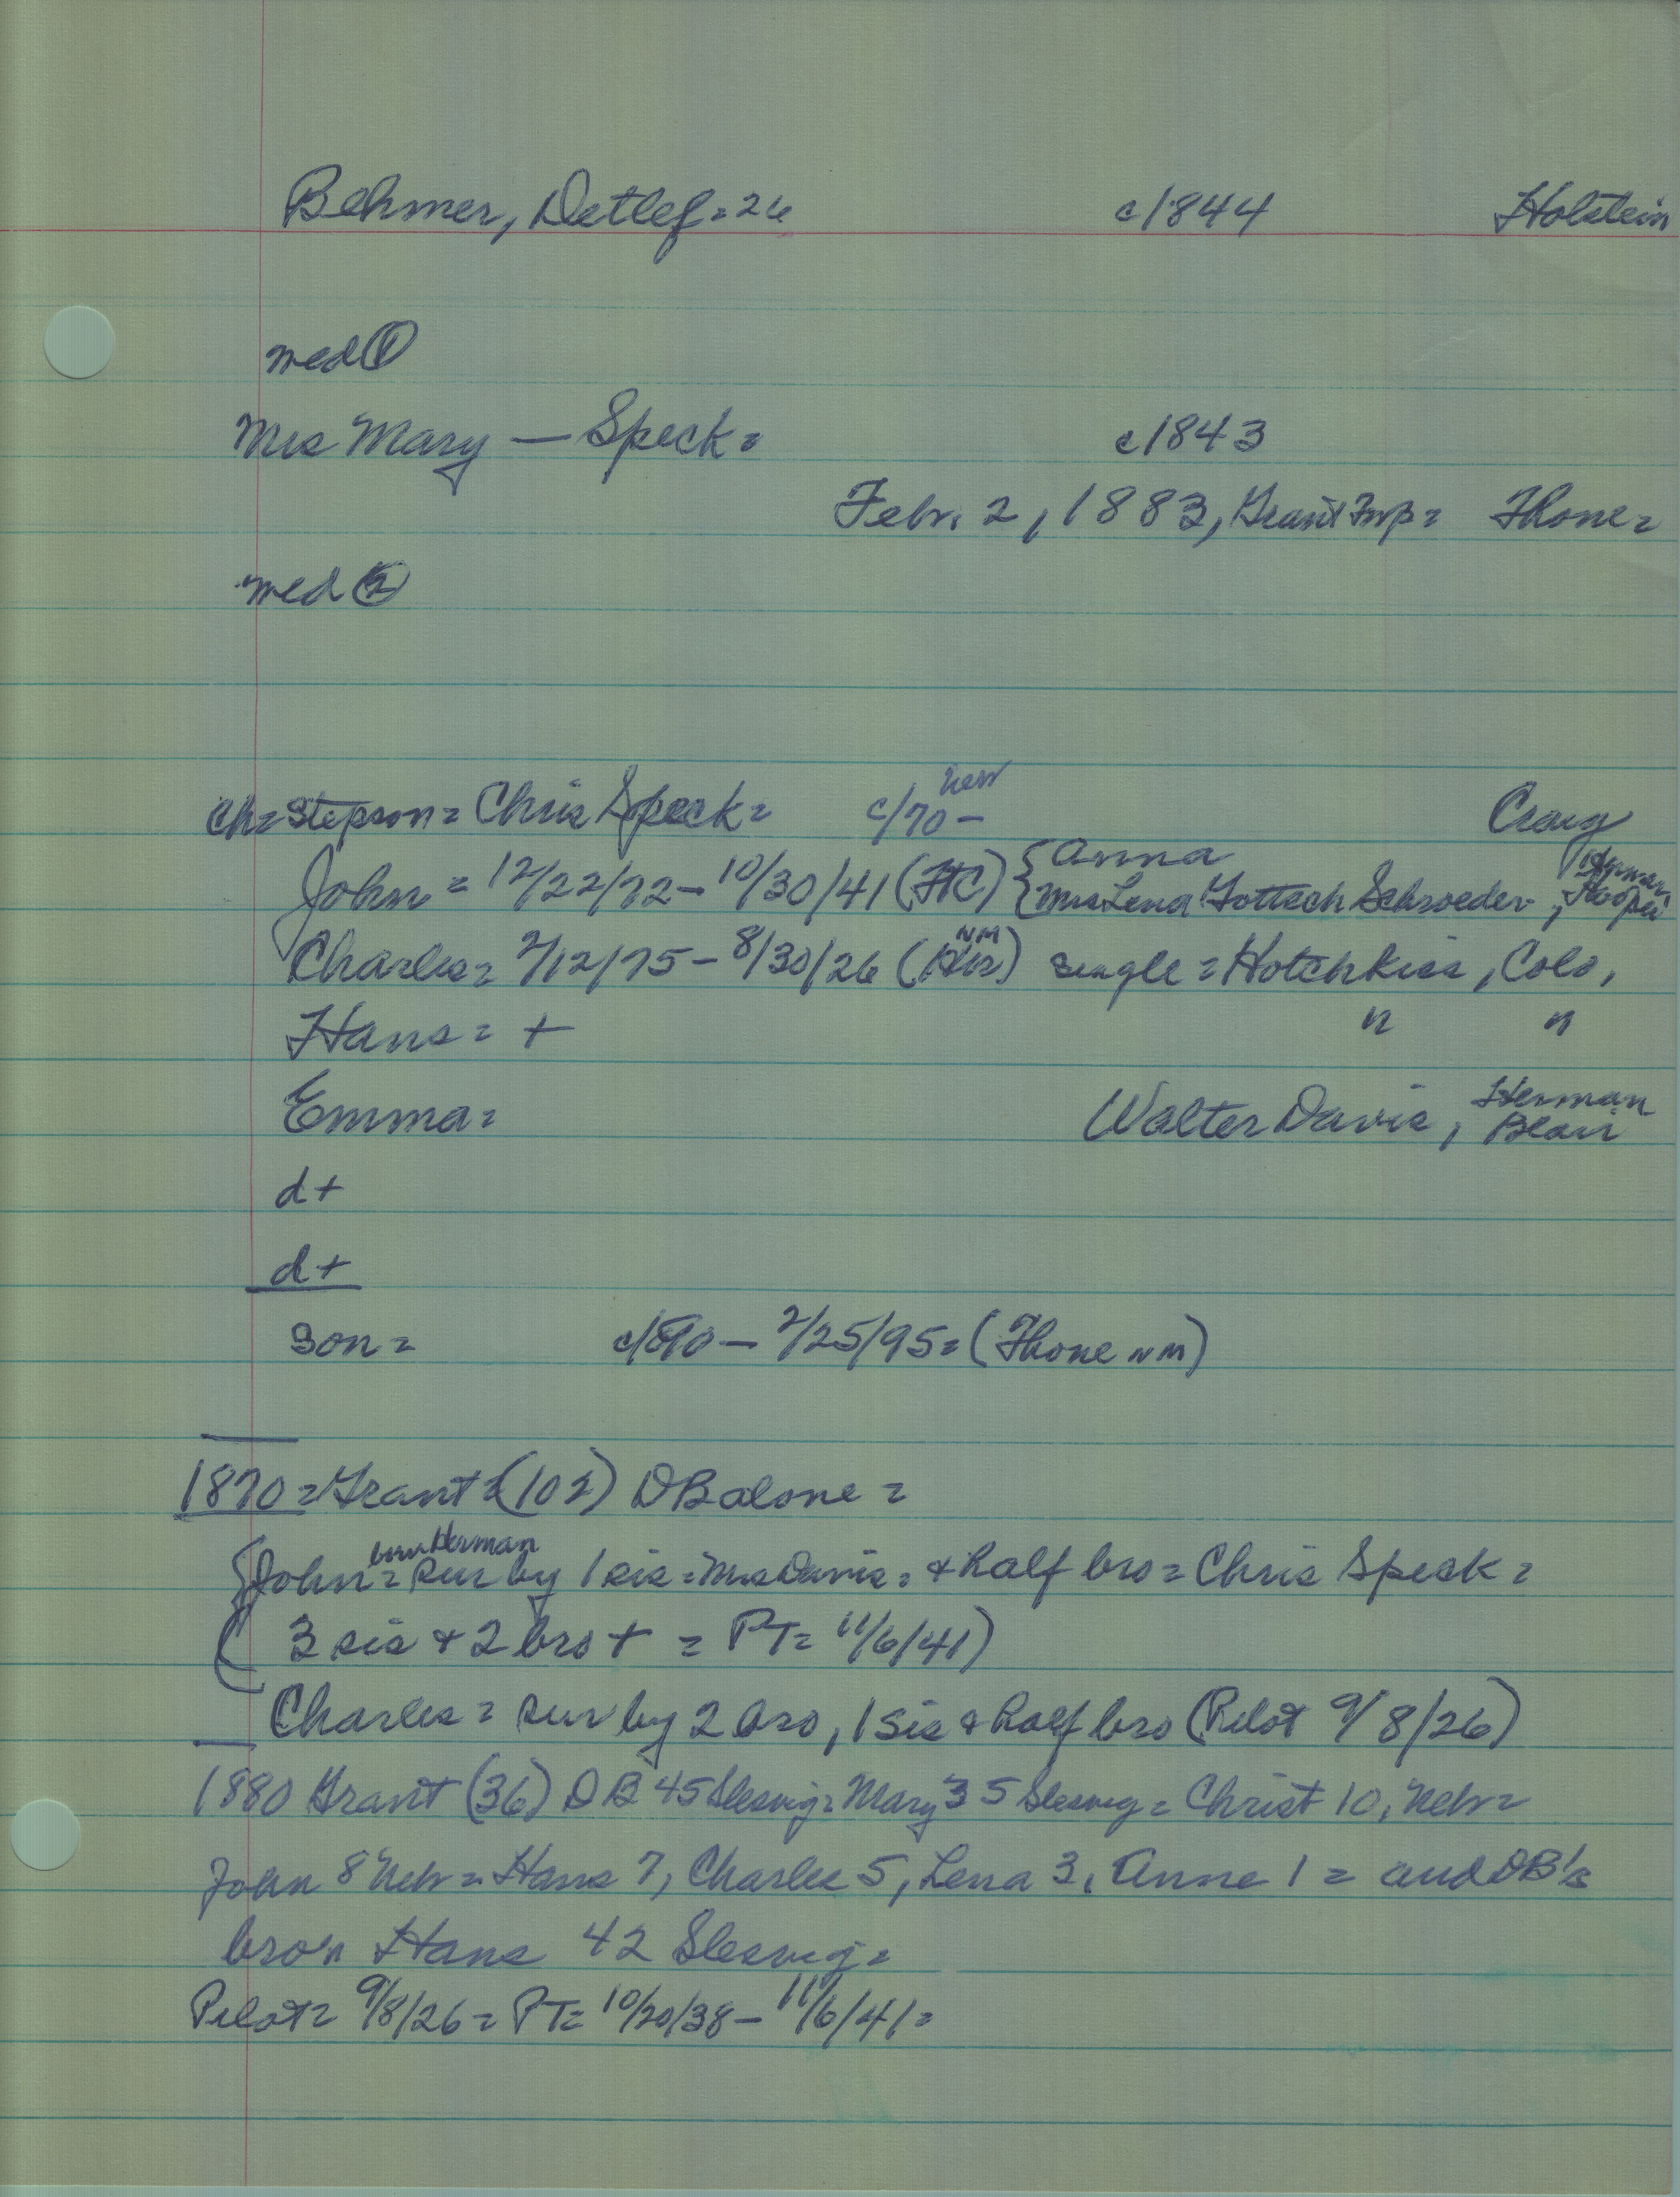 Behmer, Detlef = 26 c1844 Holstein
med ①
Mrs Mary — Speck = c1843
Febr. 2, 1883, Grant Twp = Fhone =
med ②
new
ch = stepson = Chris Speck = c/70 – Craig
John = 12/22/72 – 10/30/41 (FtC) { Anna
{ Mrs Lena Gottsch Schroeder, Herman Hooper
NM
Charles = 2/12/75 – 8/30/26 ( ) single = Hotchkiss, Colo,
Hans = + " "
Emma = Walter Davis, Herman Blair
d +
d +
son = c/890 – 2/25/95 = (Fhone NM)
1870 = Grant = (102) DB alone =
born Herman
{ John = sur by 1 sis = Mrs Davis = + half bro = Chris Speck =
( 3 sis + 2 bro + = PT = 11/6/41)
Charles = sur by 2 bro, 1 sis + half bro (Pilot 9/8/26)
1880 Grant (36) DB 45 Slesvig = Mary 35 Slesvig = Christ 10, Neb =
John 8 Neb = Hans 7, Charles 5, Lena 3, Anne 1 = and DB's
bro'n Hans 42 Slesvig =
Pilot = 9/8/26 = PT = 10/20/38 – 11/6/41 =